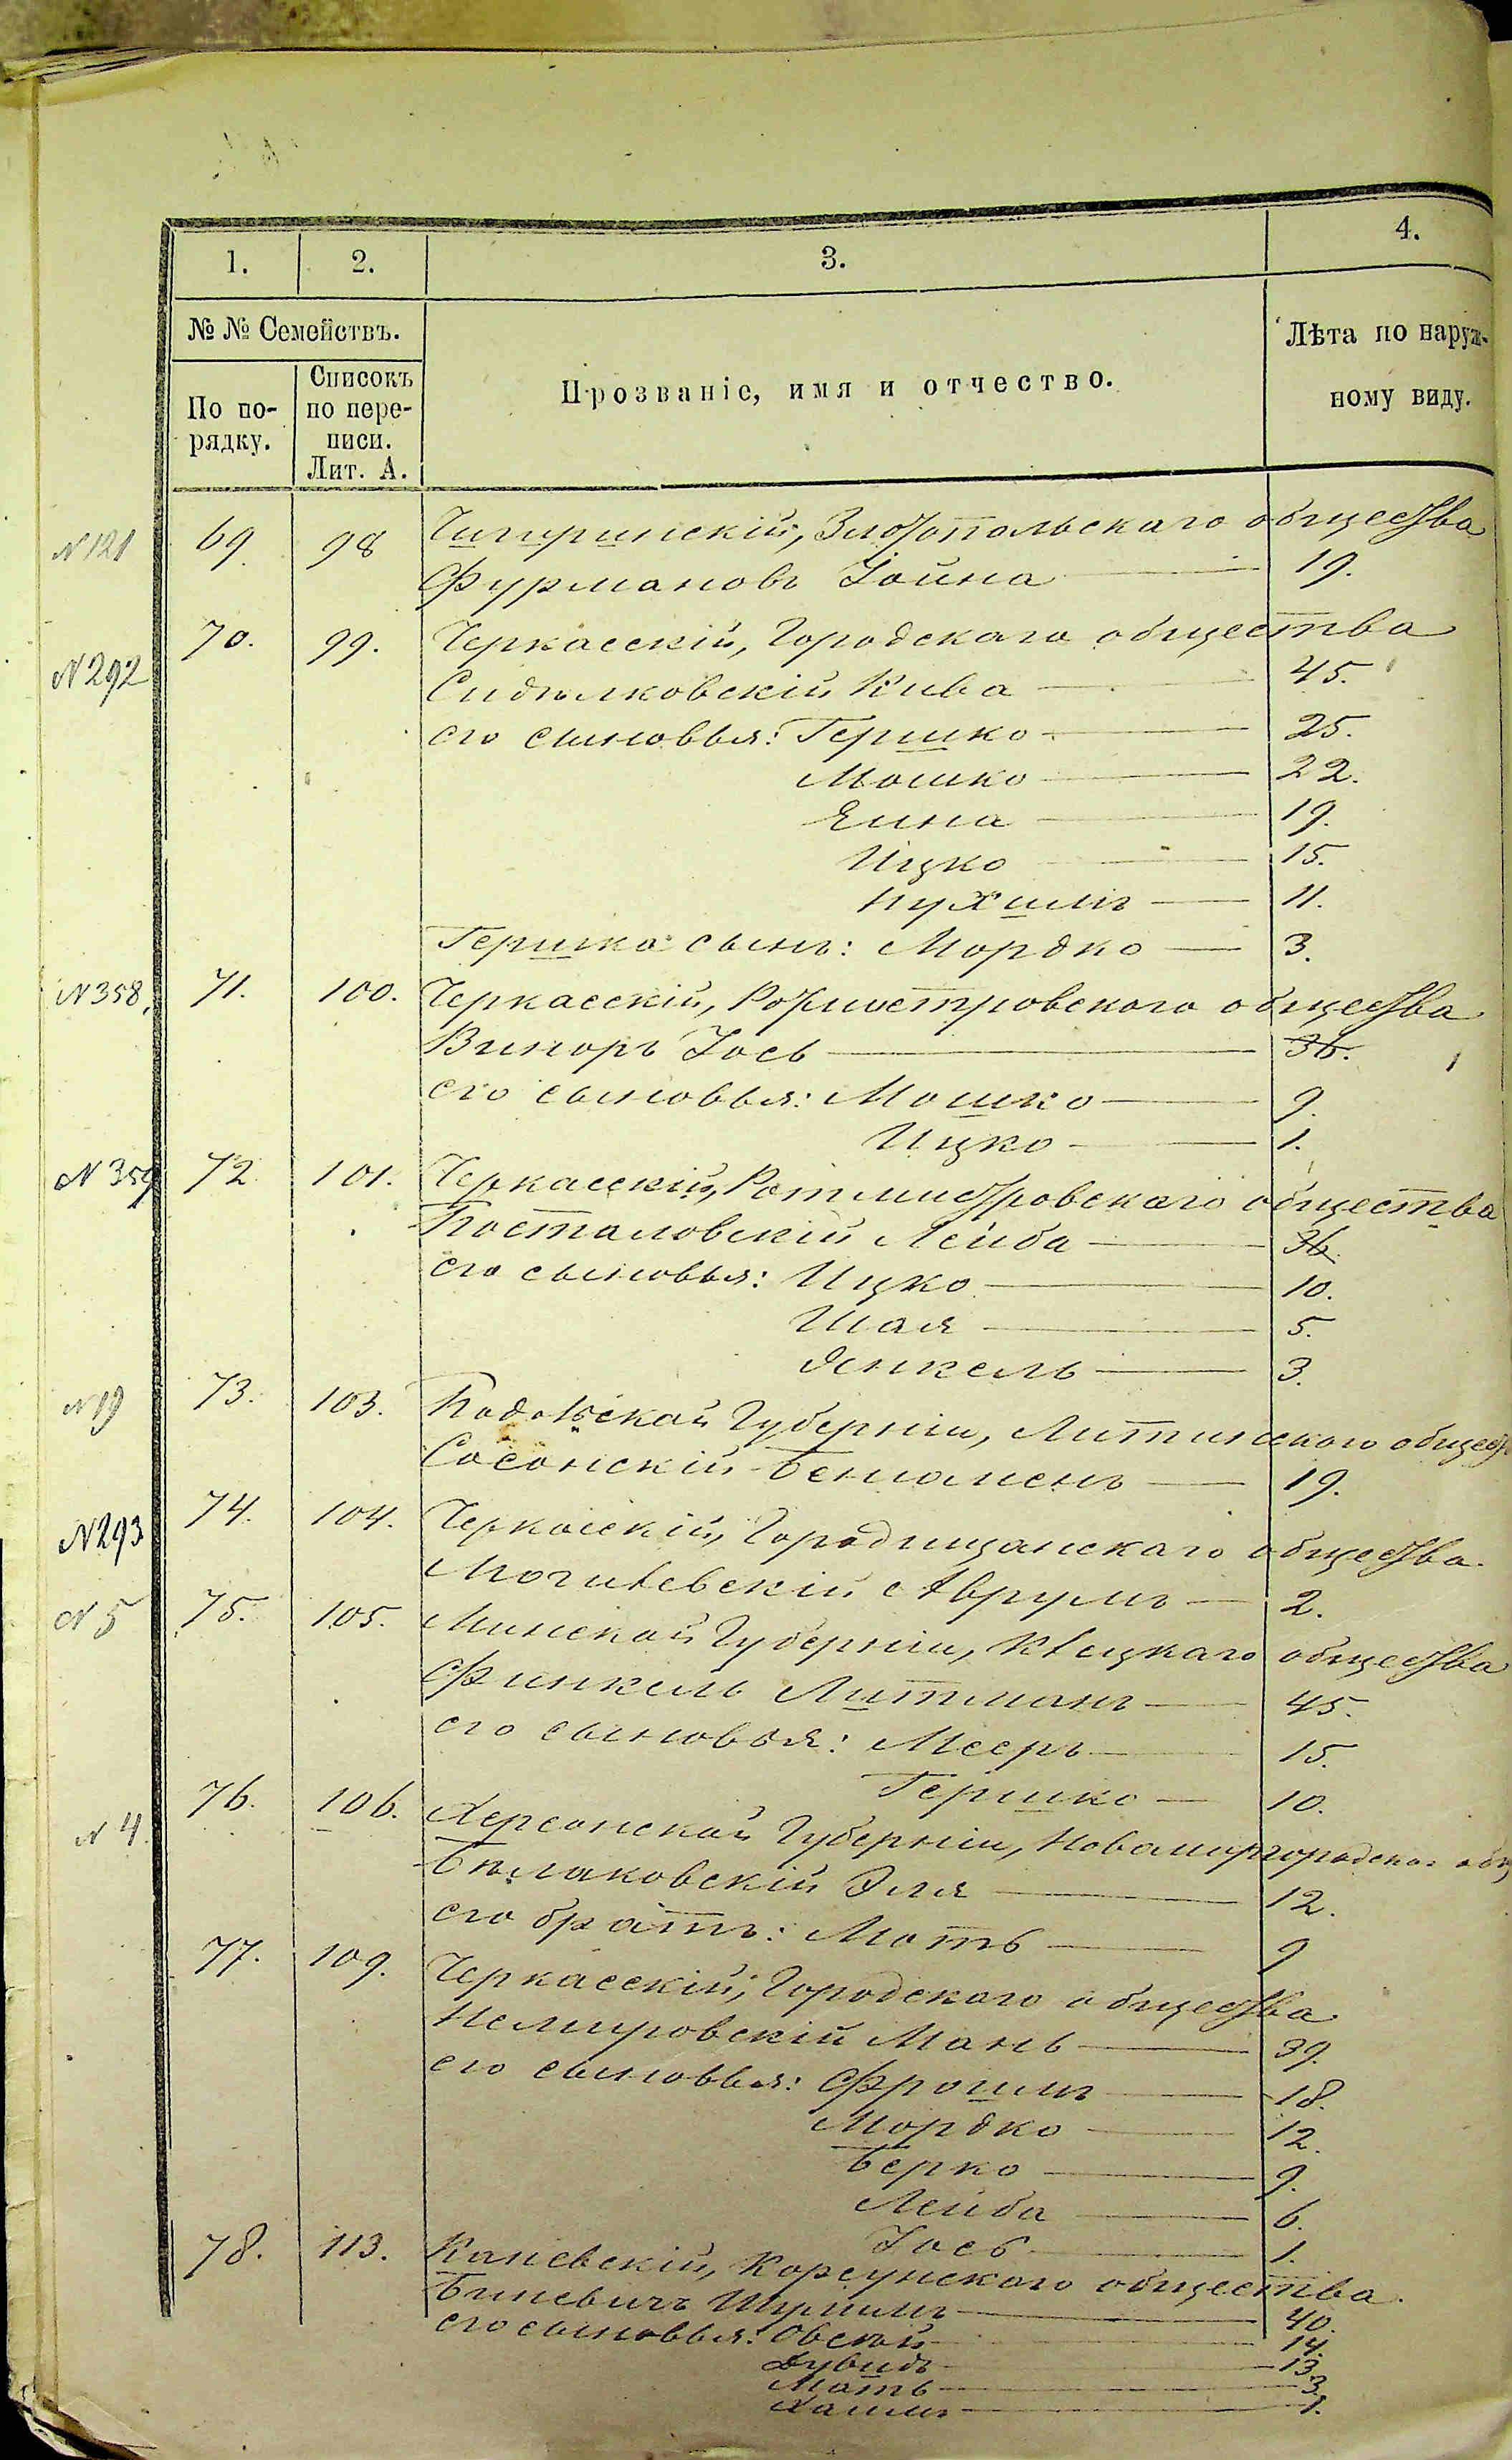 1. 2. 3. 4.
№ № Семействъ.
По порядку. Списокъ по переписи. Лит. А. Прозваніе, имя и отчество. Лѣта по наружному виду.
N 121 69. 98 Чигиринскій, Златопольскаго общества
Фурмановъ Іойна 19.
N 292 70. 99. Черкасскій, Городскаго общества
Сидѣлковскій Кива 45.
его сыновья: Гершко 25.
Мошко 22.
Ейна 19.
Ицко 15.
Нухимъ 11.
Гершка сынъ: Мордко 3.
N 358, 71. 100. Черкасскій, Ротмистровскаго общества
Виноръ Іось 36.
его сыновья: Мошко 9.
Ицко 1.
N 359 72. 101. Черкасскій, Ротмистровскаго общества
Посталовскій Лейба 36.
его сыновья: Ицко 10.
Шая 5.
Янкель 3.
N 19 73. 103. Подольской Губерніи, Литинскаго общест
Сосонскій Беніоменъ 19.
N 293 74. 104. Черкасскій, Городищанскаго общества
Могилевскій Аврумъ 2.
N 5 75. 105. Минской Губерніи, Клецкаго общества
Финкель Литманъ 45.
его сыновья: Мееръ 15.
Гершко 10.
N 4. 76. 106. Херсонской Губерніи, Новомиргородскаг общ
Бѣлаковскій Эля 12.
его братъ: Моть 9
77. 109. Черкасскій, Городскаго общества
Немировскій Мань 39.
его сыновья: Фроимъ 18.
Мордко 12.
Берко 9.
Лейба 6.
Іось 1.
78. 113. Каневскій, Корсунскаго общества.
Биневичъ 40.
его сыновья: Овсѣй 14.
Дувидъ 13.
Моть 3.
Хаимъ 1.